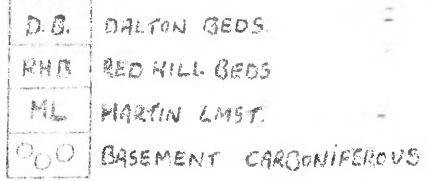 D.B. DALTON BEDS.
RHB RED HILL BEDS
ML MARTIN LMST.
BASEMENT CARBONIFEROUS